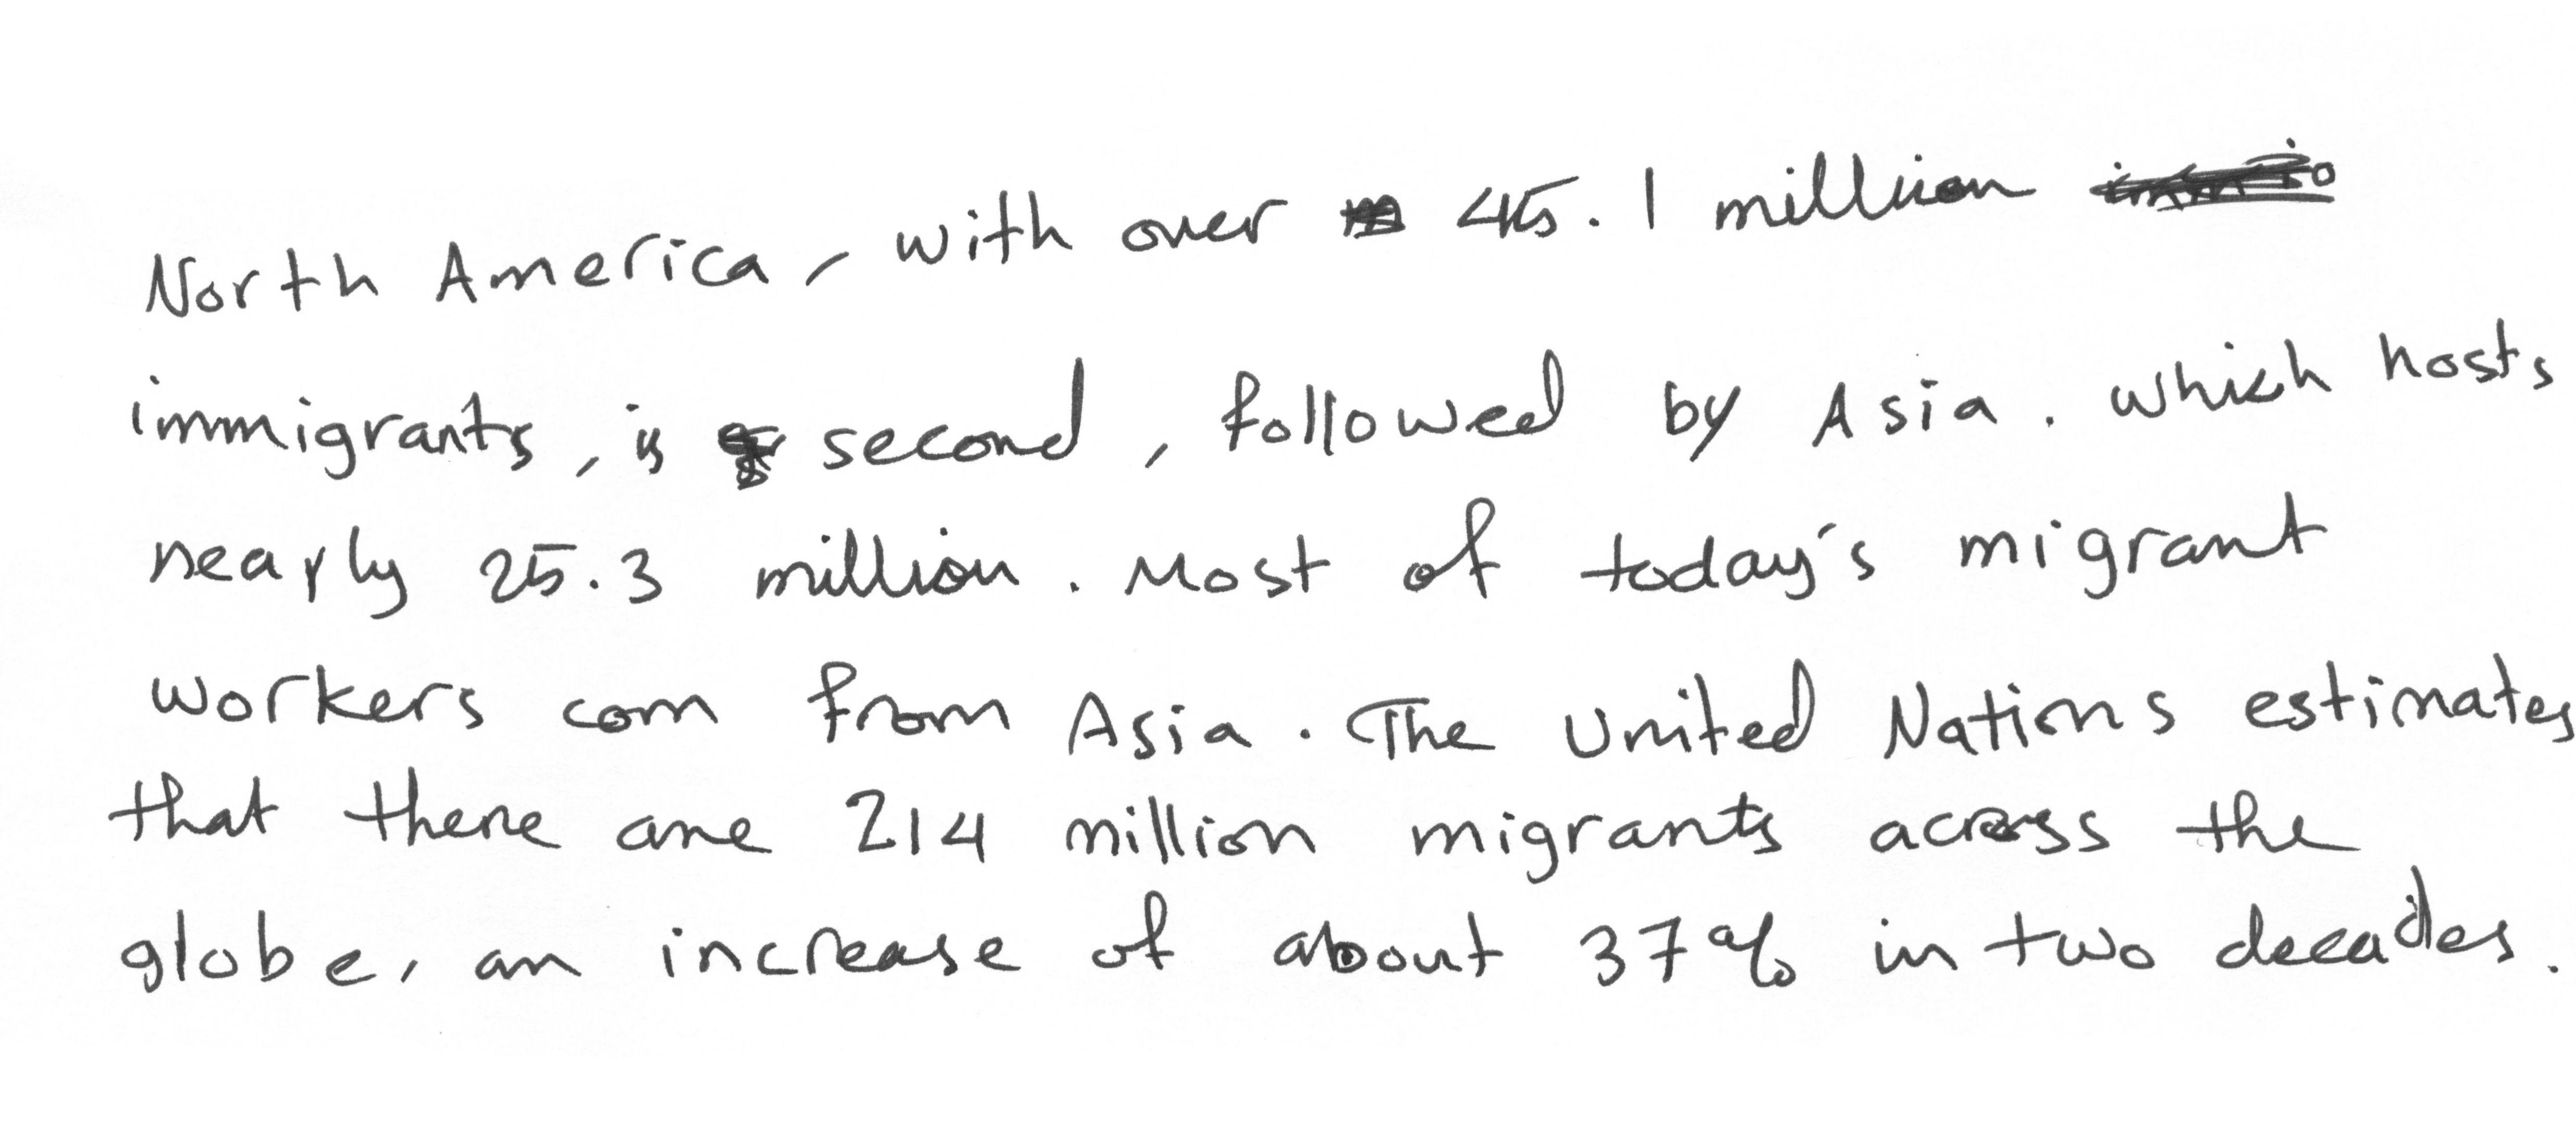 North America, with over 45.1 million
immigrants, is second, followed by Asia. which hosts
nearly 25.3 million. Most of today's migrant
workers com from Asia. The United Nations estimates
that there are 214 million migrants across the
globe, an increase of about 37% in two decades.